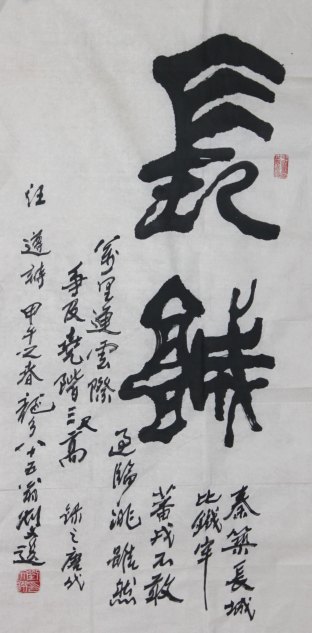 長城
秦築長城
比鐵牢
蕃戎不敢
過臨洮雖然
萬里連雲際
爭及堯階三尺高 錄之唐代
汪遵詩 甲午之春 八十五翁